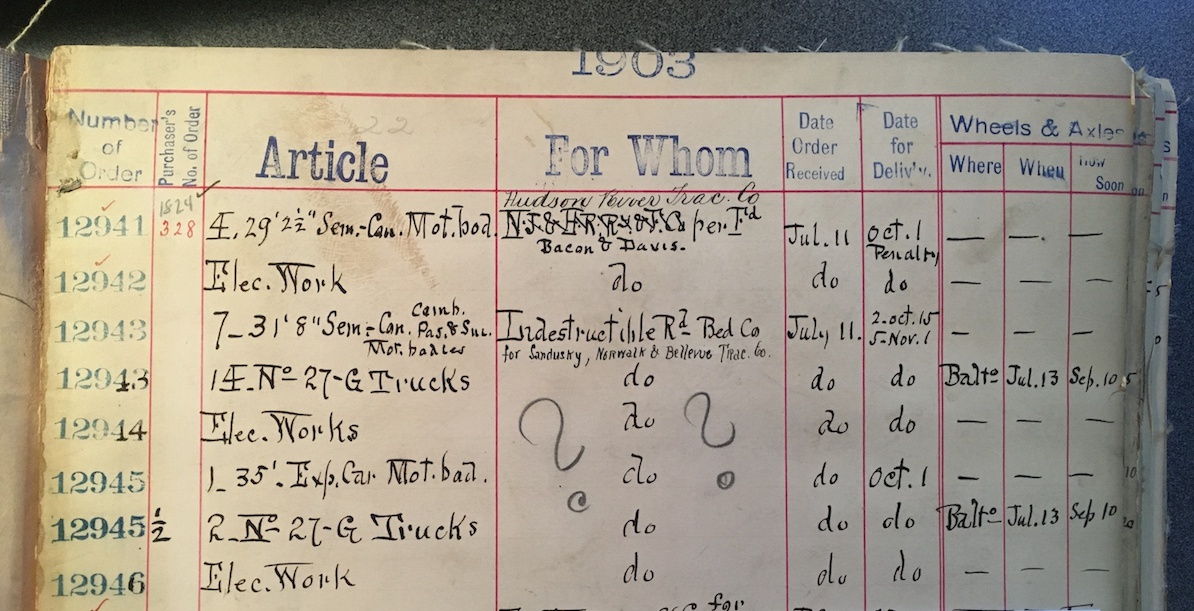 1903
Number of Order Purchaser's No. of Order Article For Whom Date Order Received Date for Deliv'y. Wheels & Axles
Where When How Soon
22
1824 Hudson River Trac. Co
12941 328 4. 29' 2½" Sem.-Can. Mot. bod. per Fd Jul. 11 Oct. 1 — — —
Bacon & Davis. Penalty
12942 Elec. Work do do do — — —
12943 7_ 31' 8" Sem.-Can. Comb. Pas. & Smr. Mot. bodies Indestructible Rd Bed Co July 11. 2. Oct. 15 5-Nov. 1 — — —
for Sandusky, Norwalk & Bellevue Trac. Co.
12943 14. No 27-G Trucks do do do Balto Jul. 13 Sep. 10
12944 Elec. Works do do do — — —
? ?
12945 1_ 35'. Exp. Car Mot. bod. do do Oct. 1 — — —
12945½ 2_ No 27-G Trucks do do do Balto Jul. 13 Sep 10
12946 Elec. Work do do do — — —
for